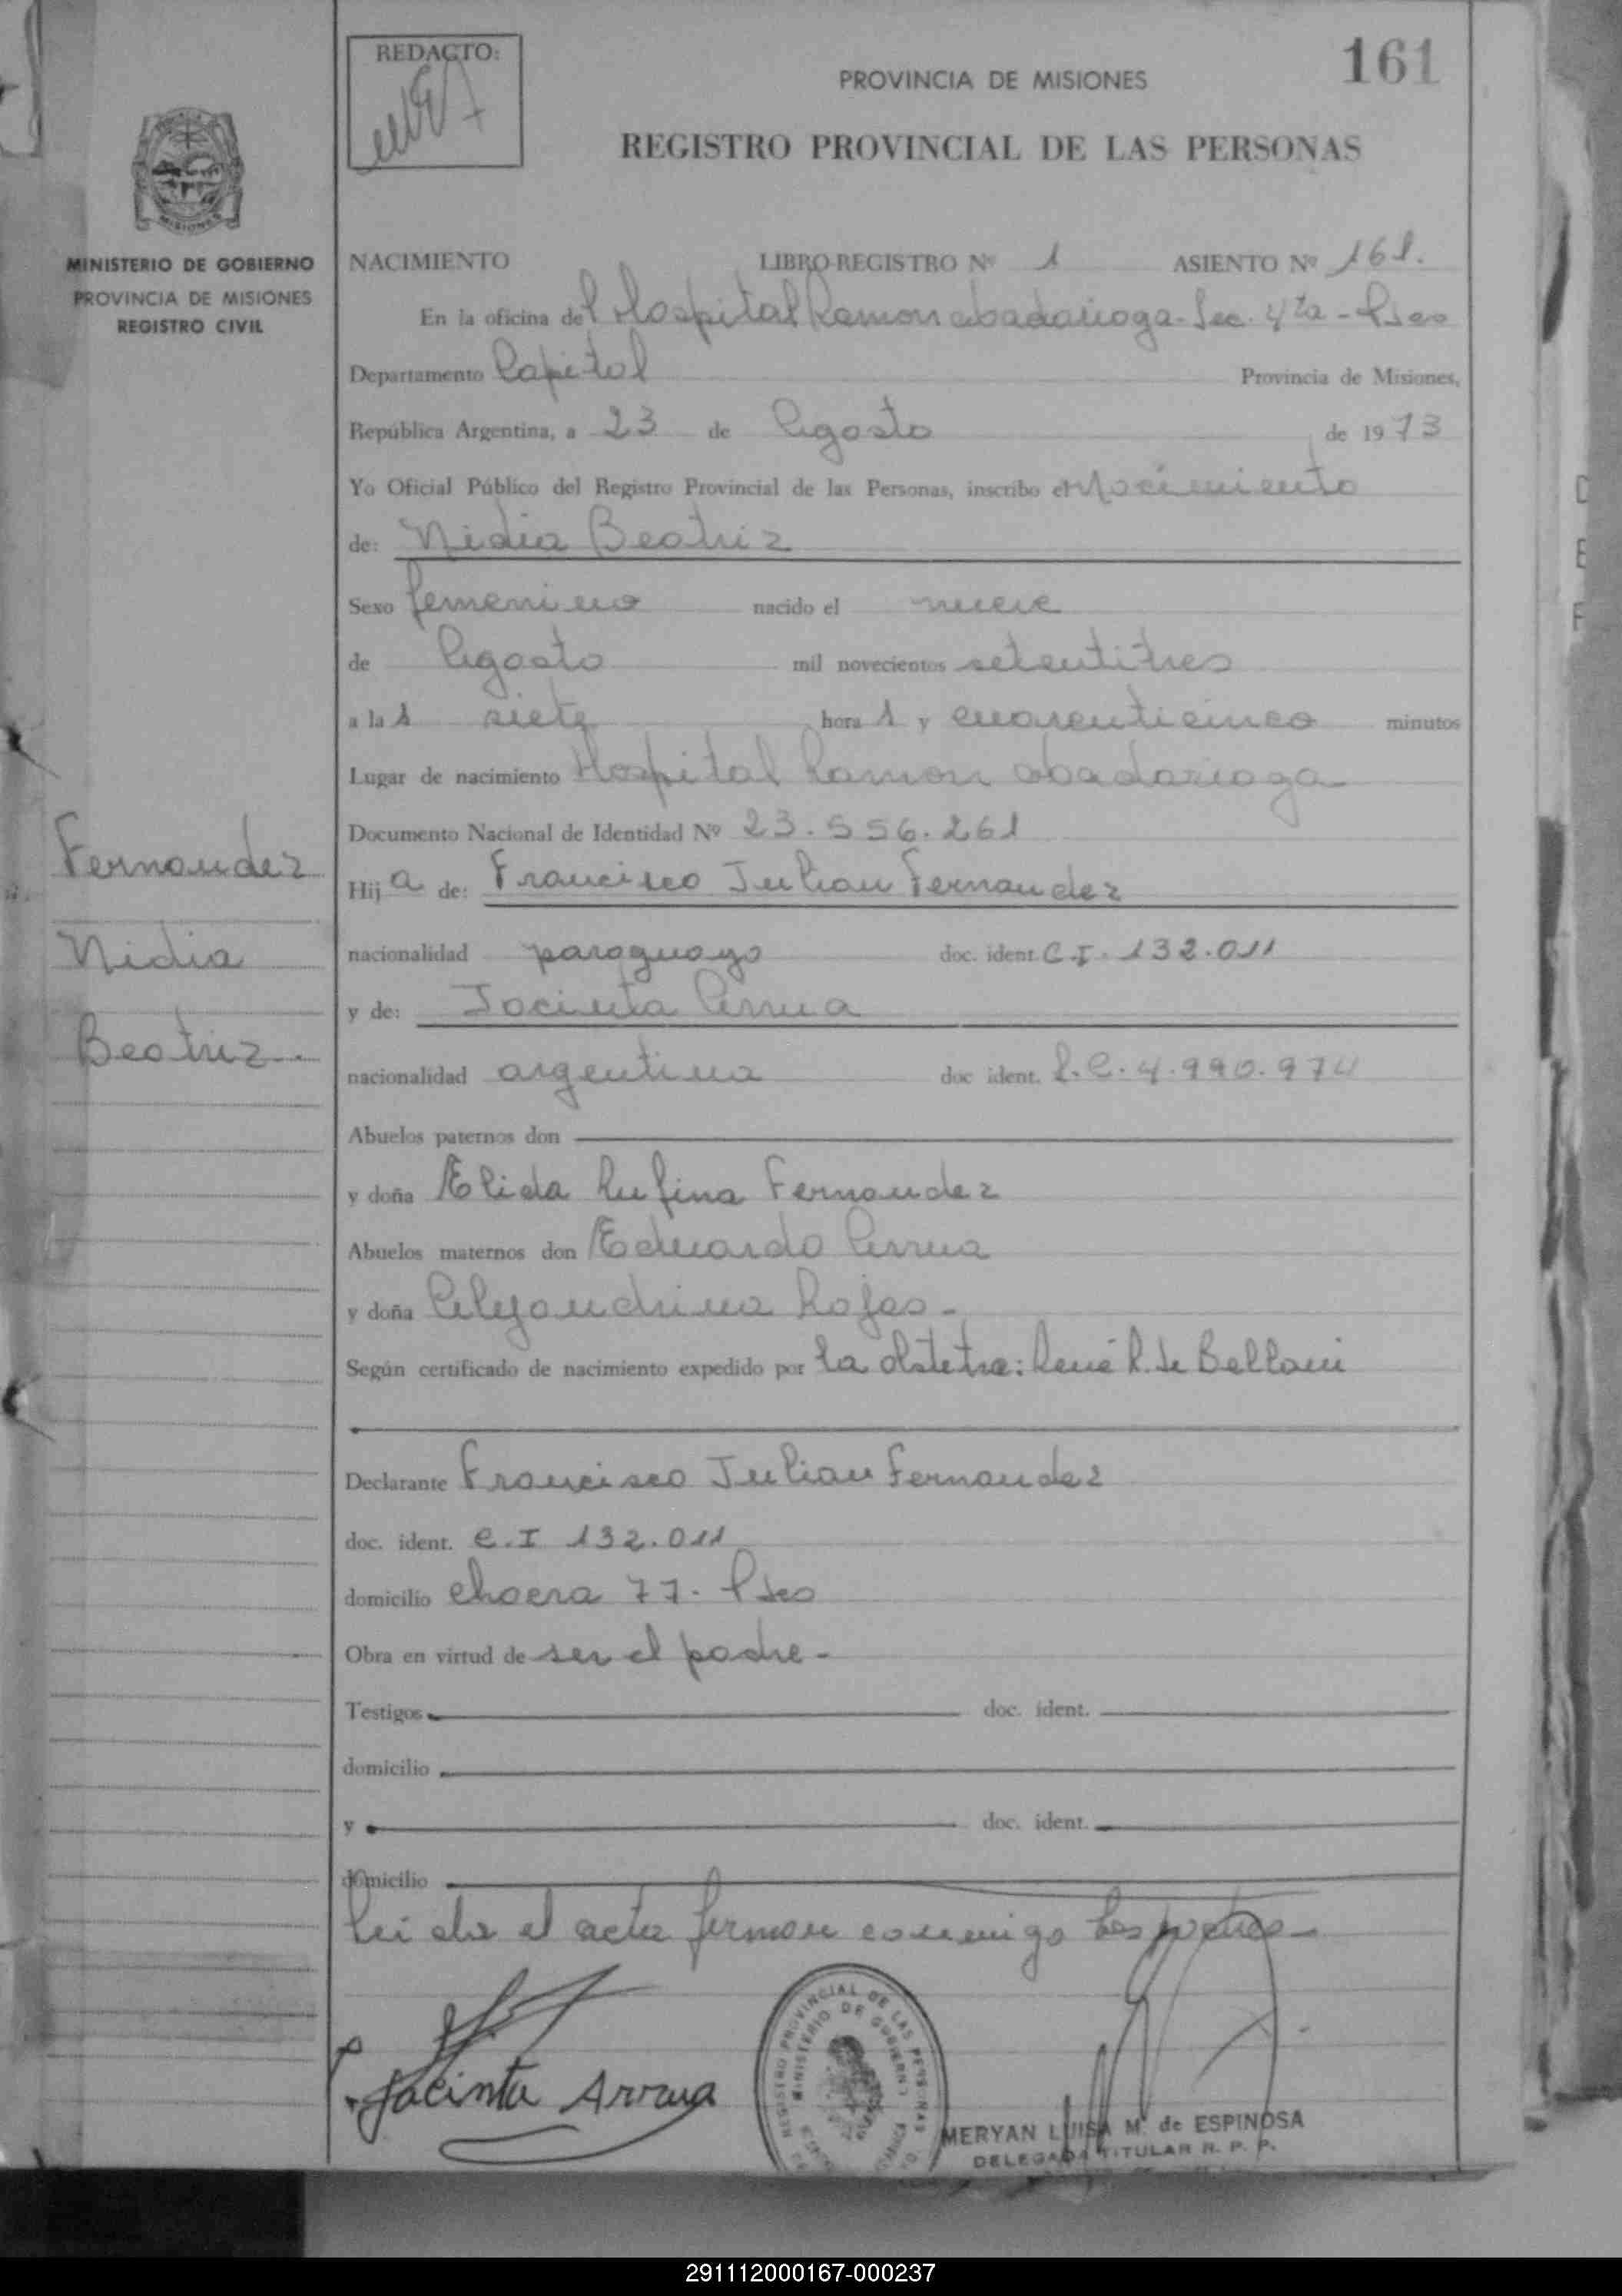 REDACTO:
161
PROVINCIA DE MISIONES
REGISTRO PROVINCIAL DE LAS PERSONAS
MISIONES
MINISTERIO DE GOBIERNO
PROVINCIA DE MISIONES
REGISTRO CIVIL
NACIMIENTO LIBRO-REGISTRO Nº 1 ASIENTO Nº 161.
En la oficina del Hospital Ramon abadarioga - Sec. 4ta - Psas
Departamento Capital Provincia de Misiones,
República Argentina, a 23 de Agosto de 1973
Yo Oficial Público del Registro Provincial de las Personas, inscribo el Nacimiento
de: Nidia Beatriz
Sexo femenino nacido el nueve
de Agosto mil novecientos setentitres
a las siete hora s y cuarenticinco minutos
Lugar de nacimiento Hospital Ramon abadarioga
Documento Nacional de Identidad Nº 23.556.261
Hija de: Francisco Julian Fernandez
nacionalidad paraguayo doc. ident. C.I. 132.011
y de: Jacinta Arrua
nacionalidad argentina doc ident. L.C. 4.990.974
Abuelos paternos don
y doña Elida Rufina Fernandez
Abuelos maternos don Eduardo Arrua
y doña Alejandrina Rojas -
Según certificado de nacimiento expedido por la obstetra: René R. de Belloni
Declarante Francisco Julian Fernandez
doc. ident. C.I 132.011
domicilio chacra 77 - Psas
Obra en virtud de ser el padre -
Testigos doc. ident.
domicilio
y doc. ident.
domicilio
Leida el acta firman conmigo los padres -
Fernandez
Nidia
Beatriz
Jacinta Arrua
REGISTRO PROVINCIAL DE LAS PERSONAS
MINISTERIO DE GOBIERNO
MERYAN LUISA M. de ESPINOSA
DELEGADA TITULAR R. P. P.
291112000167-000237